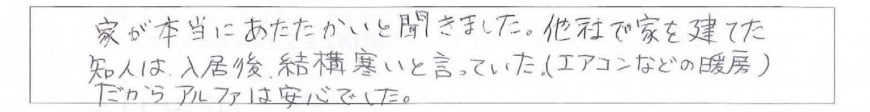 家が本当にあたたかいと聞きました。他社で家を建てた
知人は、入居後、結構寒いと言っていた。(エアコンなどの暖房)
だからアルファは安心でした。